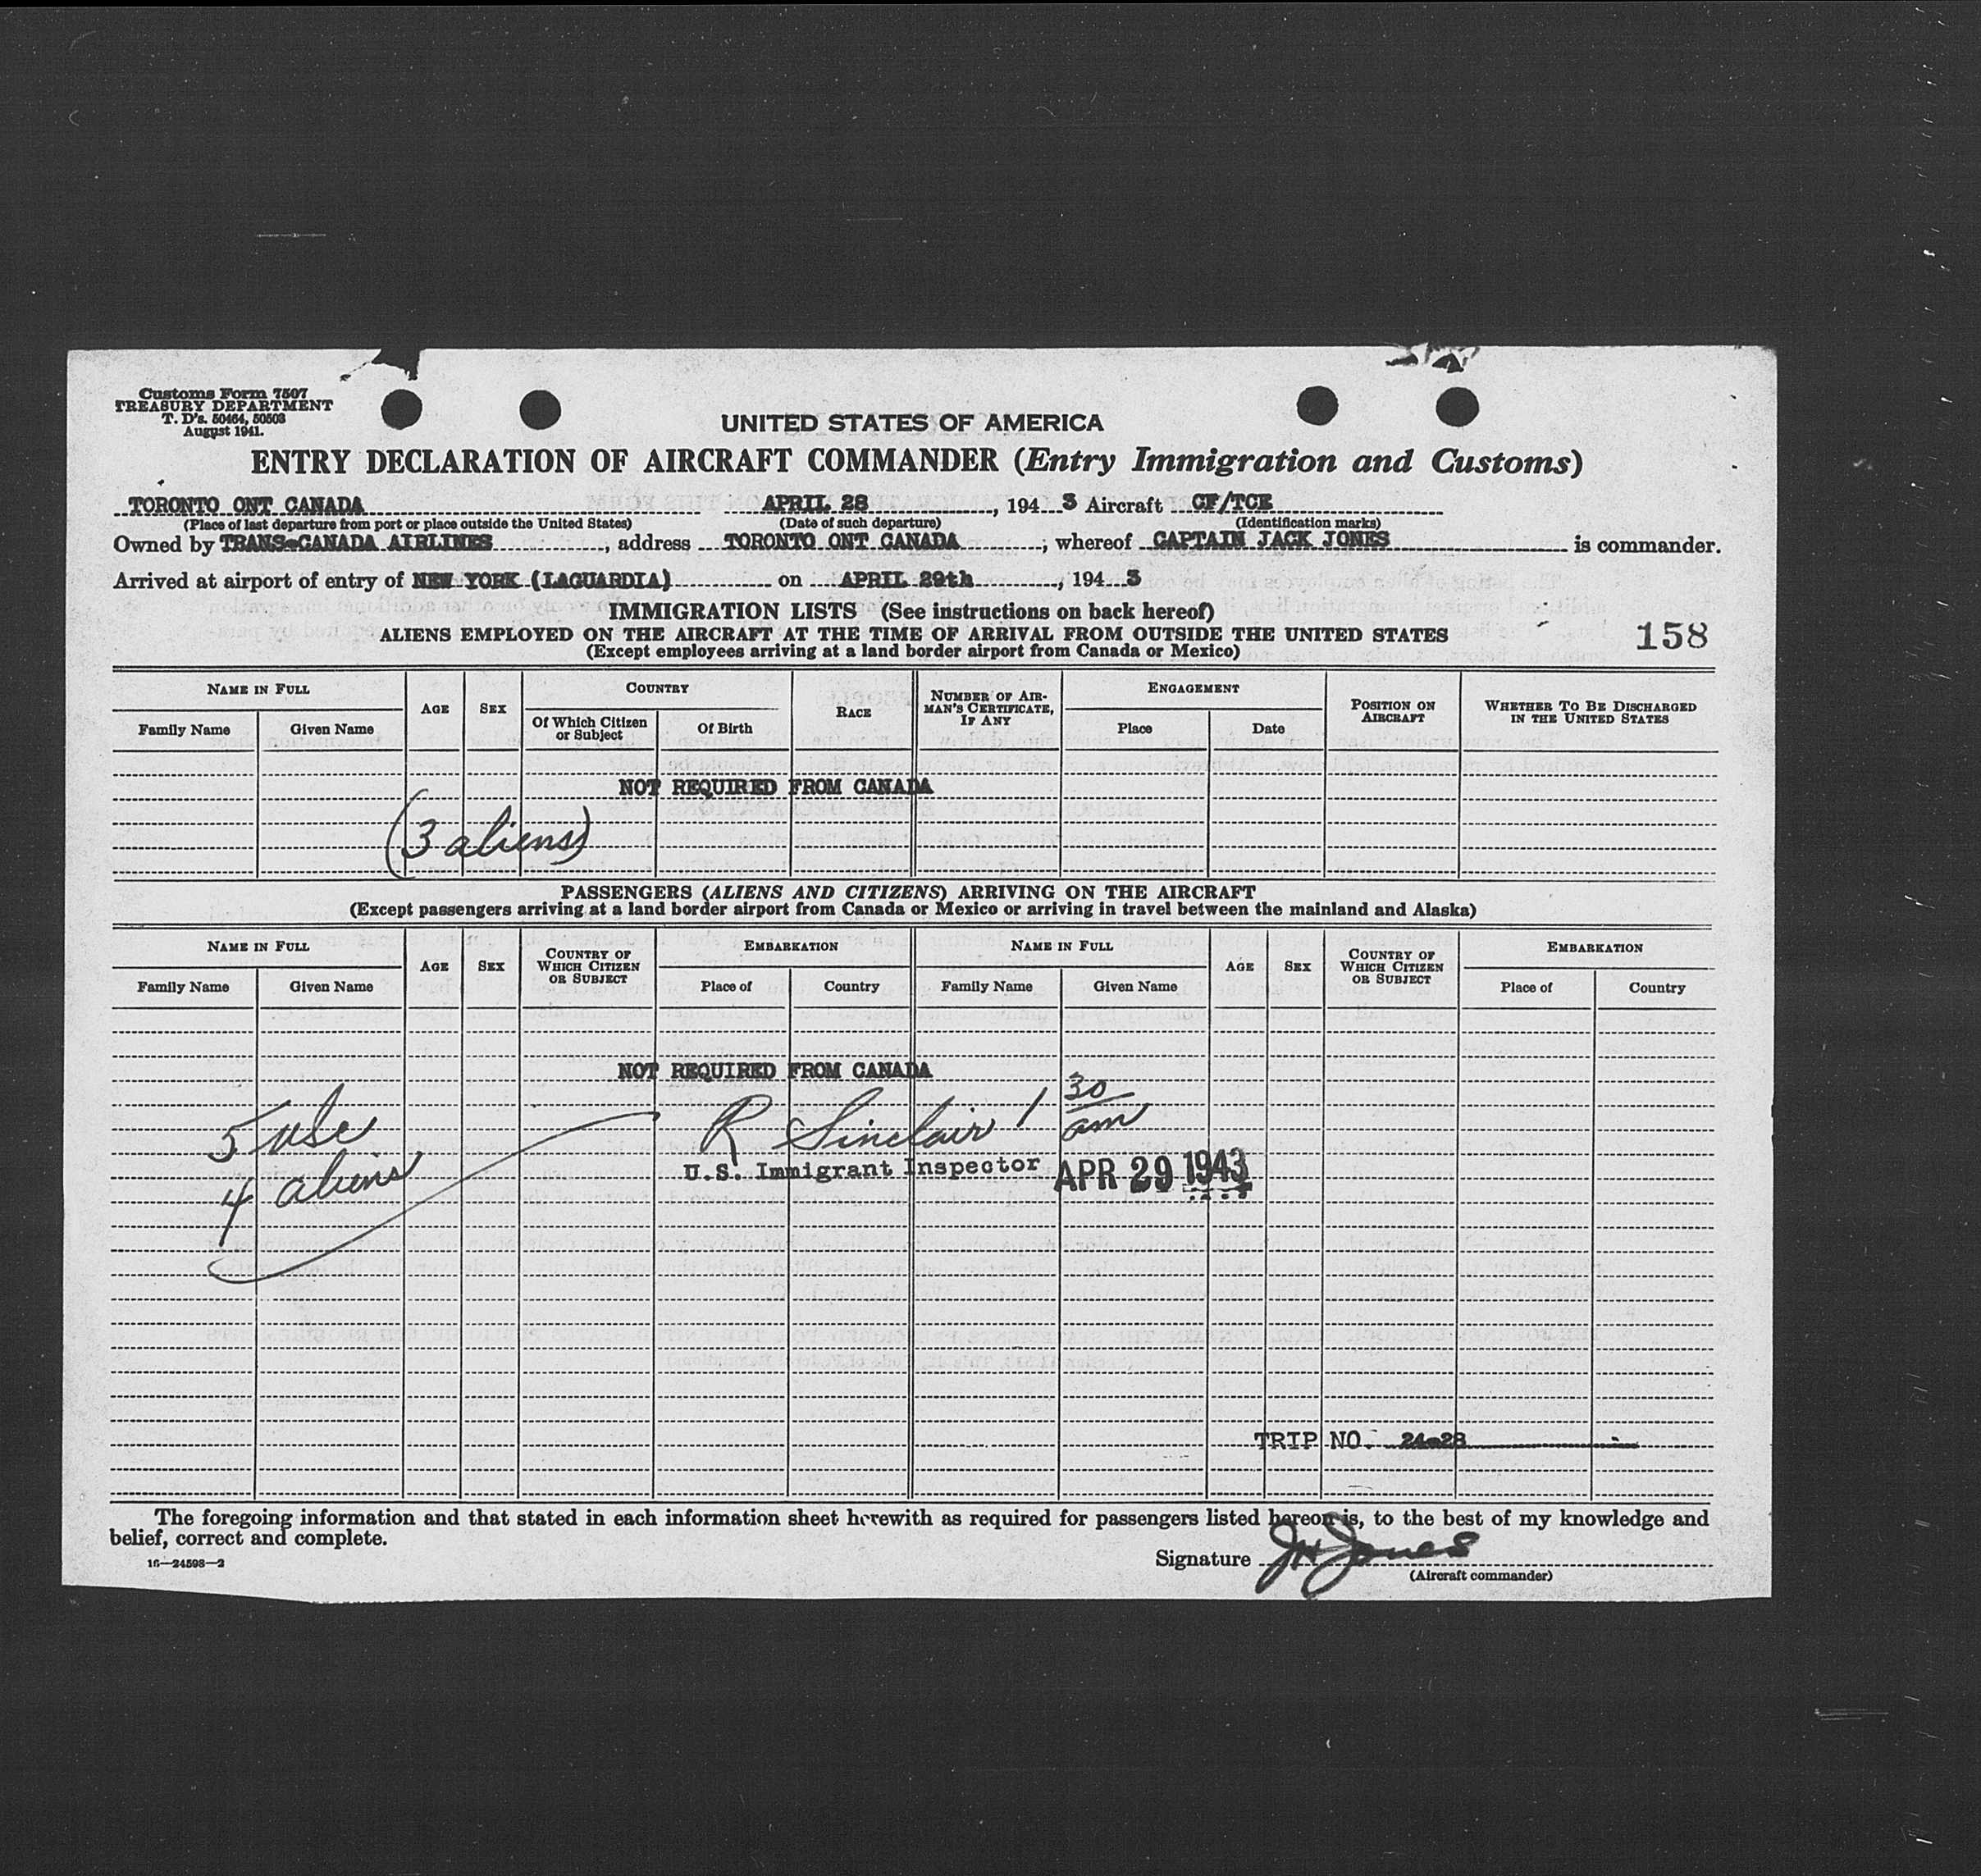 Customs Form 7507
TREASURY DEPARTMENT
T. D's. 50464, 50503
August 1941.
UNITED STATES OF AMERICA
ENTRY DECLARATION OF AIRCRAFT COMMANDER (Entry Immigration and Customs)
TORONTO ONT CANADA APRIL 28, 1943 Aircraft CF/TCE
(Place of last departure from port or place outside the United States) (Date of such departure) (Identification marks)
Owned by TRANS-CANADA AIRLINES, address TORONTO ONT CANADA; whereof CAPTAIN JACK JONES is commander.
Arrived at airport of entry of NEW YORK (LAGUARDIA) on APRIL 29th, 1943
IMMIGRATION LISTS (See instructions on back hereof)
ALIENS EMPLOYED ON THE AIRCRAFT AT THE TIME OF ARRIVAL FROM OUTSIDE THE UNITED STATES
158
(Except employees arriving at a land border airport from Canada or Mexico)
NAME IN FULL AGE SEX COUNTRY RACE NUMBER OF AIRMAN'S CERTIFICATE, IF ANY ENGAGEMENT POSITION ON AIRCRAFT WHETHER TO BE DISCHARGED IN THE UNITED STATES
Family Name Given Name Of Which Citizen or Subject Of Birth Place Date
NOT REQUIRED FROM CANADA
(3 aliens)
PASSENGERS (ALIENS AND CITIZENS) ARRIVING ON THE AIRCRAFT
(Except passengers arriving at a land border airport from Canada or Mexico or arriving in travel between the mainland and Alaska)
NAME IN FULL AGE SEX COUNTRY OF WHICH CITIZEN OR SUBJECT EMBARKATION NAME IN FULL AGE SEX COUNTRY OF WHICH CITIZEN OR SUBJECT EMBARKATION
Family Name Given Name Place of Country Family Name Given Name Place of Country
NOT REQUIRED FROM CANADA
5 usc R Sinclair 1 30/am
4 aliens U.S. Immigrant Inspector APR 29 1943
TRIP NO. 24-28
The foregoing information and that stated in each information sheet herewith as required for passengers listed hereon is, to the best of my knowledge and
belief, correct and complete.
16—24598—2
Signature JH Jones
(Aircraft commander)